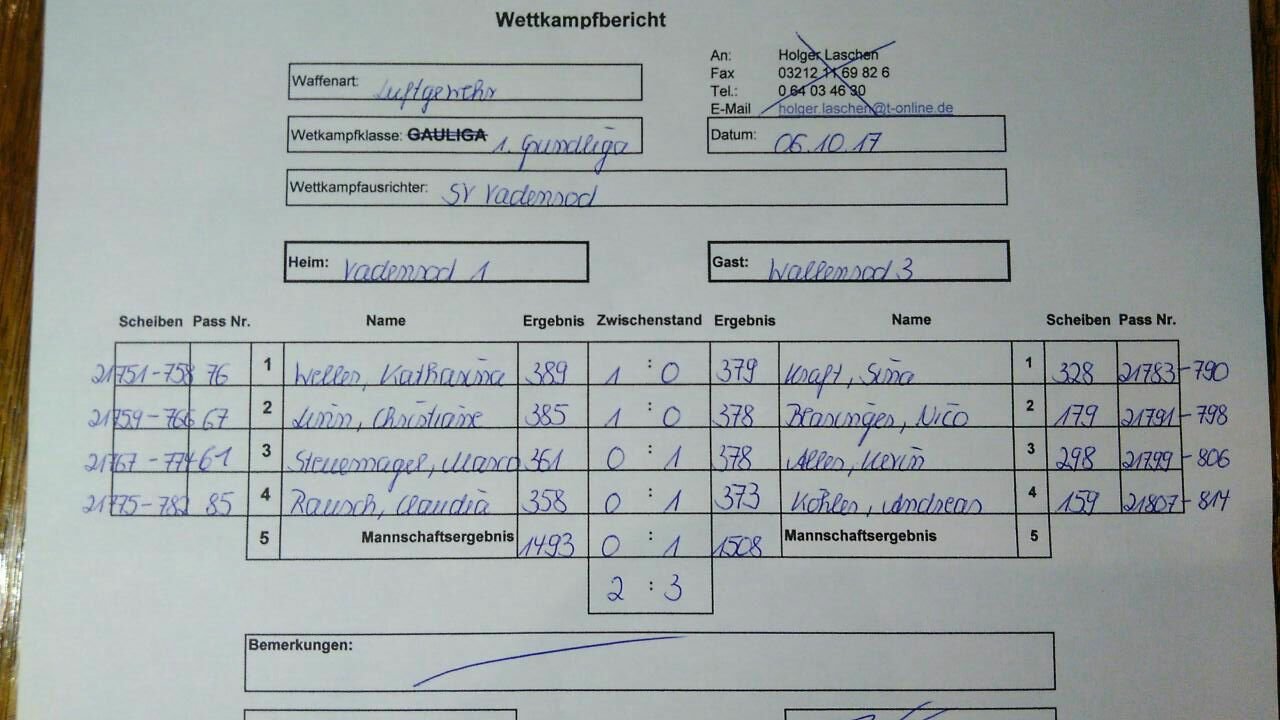 Wettkampfbericht
An: Holger Laschen
Fax 03212 11 69 82 6
Tel.: 0 64 03 46 30
E-Mail holger.laschen@t-online.de
Waffenart: Luftgewehr
Wetkampfklasse: GAULIGA 1. Grundliga
Datum: 06.10.17
Wettkampfausrichter: SV Vadenrod
Heim: Vadenrod 1
Gast: Wallenrod 3
Scheiben Pass Nr. Name Ergebnis Zwischenstand Ergebnis Name Scheiben Pass Nr.
21751-758 76 1 Weller, Katharina 389 1 : 0 379 Kraft, Sina 1 328 21783-790
21759-766 67 2 Christiane 385 1 : 0 378 Nico 2 179 21791-798
21767-774 61 3 Steuernagel, Marco 361 0 : 1 378 Kevin 3 298 21799-806
21775-782 85 4 Rausch, Claudia 358 0 : 1 373 Köhler, Andreas 4 159 21807-814
5 Mannschaftsergebnis 1493 0 : 1 1508 Mannschaftsergebnis 5
2 : 3
Bemerkungen: